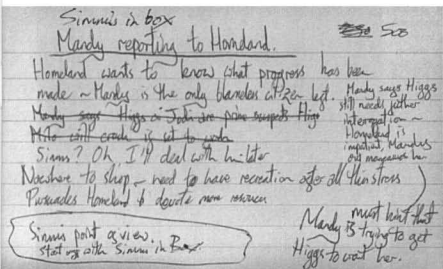 Simms in box
Mandy reporting to Homeland.
Homeland wants to know what progress has been
made ~ Mandy is the only blameless citizen left.
Mandy says Higgs or Jodi are prime suspects
Milo will crack is set to
Simms? Oh I'll deal with him later
Nowhere to shop - need to have recreation after all this stress
Persuades Homeland to devote more resources
Mandy says Higgs
still needs further
interrogation ~
Homeland is
impatient, Mandy
Simms point of view.
start with Simms in Box
Mandy must hint that
is trying to get
Higgs to want her.